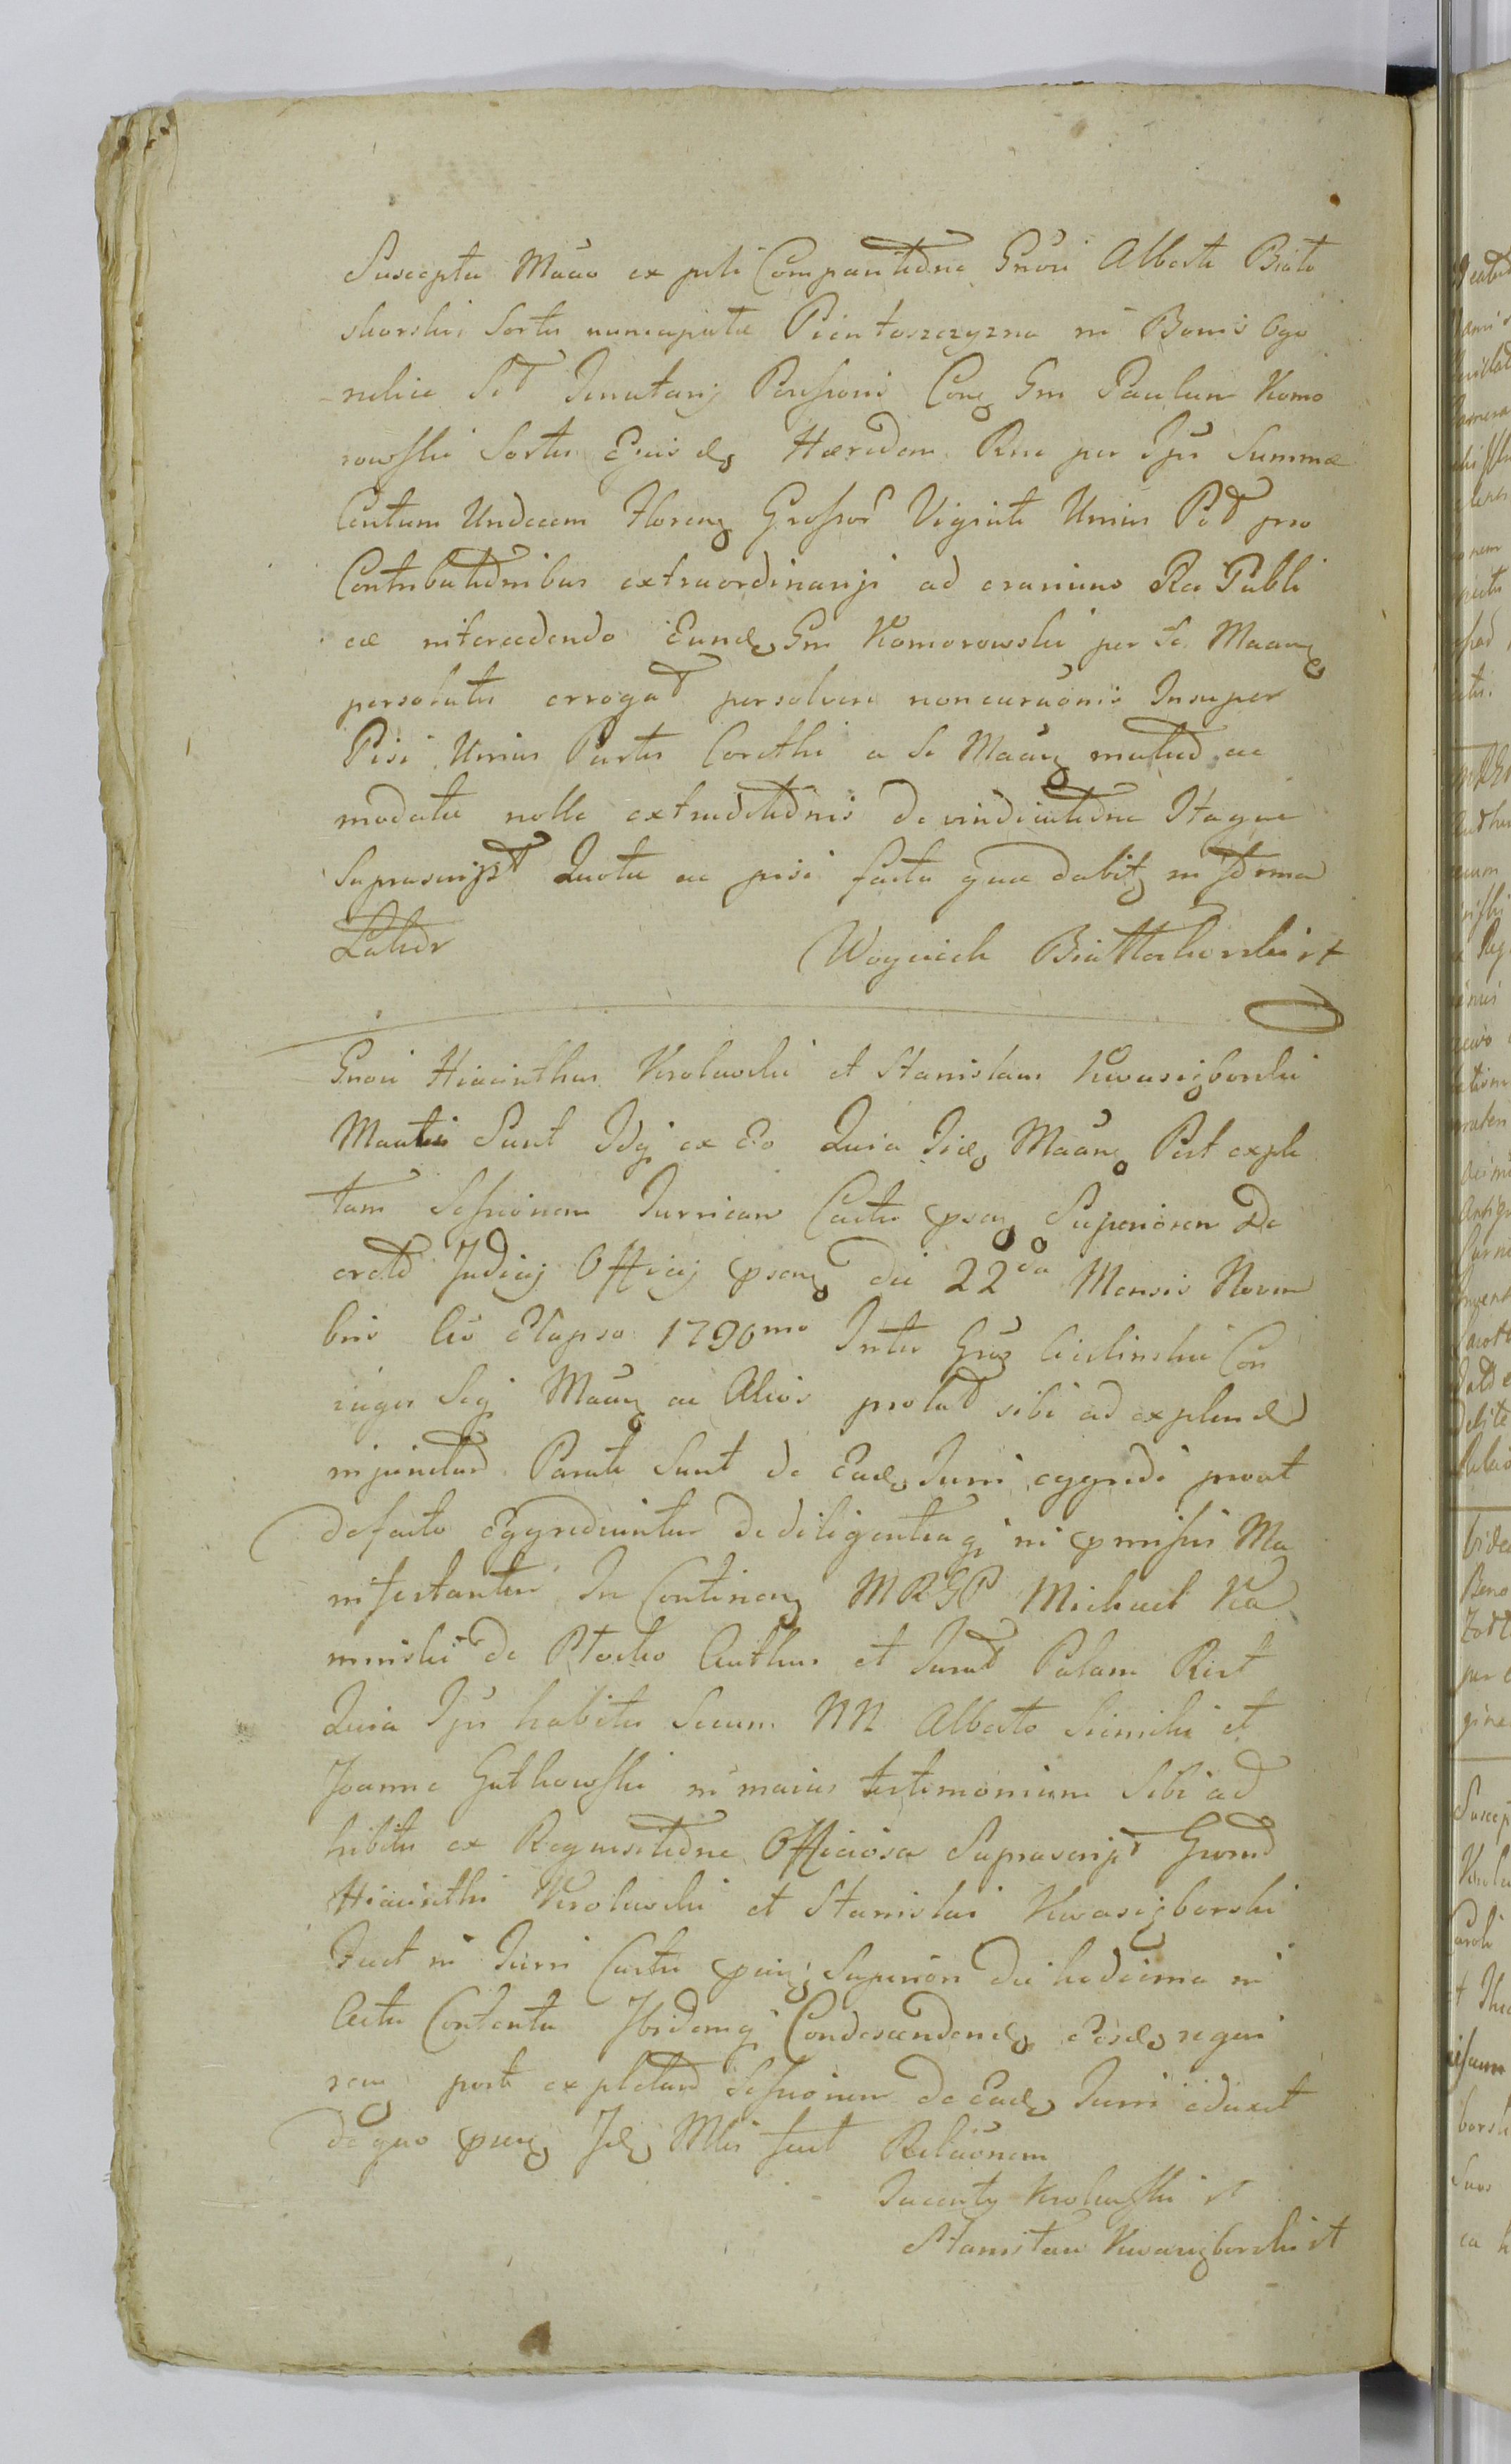 Suscepta Maāo ex psti Comparitione Gnōri Alberti Biało
skorski Sortis nuncupatæ Pientoszczyzna in Bonis Ogo
nelice Sit Tenutarij Possoris Cong Gm Paulum Komo
rowski Sortis Ejusdg Hæredem Rne per Ipū Summæ
Centum Undecem Floreng Grossor Viginti Unius Pol pro
Contributionibus extraordinarijs ad erarium Rei Publi
cæ intercedendo Eundg Gm Komorowski per Se Maang
persolutis errogat persolvere noncuraōnis Insuper
Pisi Unius Partis Corethi a Se Maāng mutuo ac
modatæ nolle extraditionis De vindicatione Itaque
Suprascript Quotæ ac pisi facta quæ dabitg in Forma
Latior
Woyciech Białłoskorski st
Gnōri Hiacinthus Krolewski et Stanislaus Kwasigborski
Mantes Sunt Idg ex Eo Quia Iidg Maāng Post exple
tam Sessionem Turricam Castri psang Superiorem De
creto Judicij Officij psang die 22da Mensis Novem
bris Cio Elapso 1790mo Inter Gnos Cielinskie Con
juges Seqj Maāng ac Alios prolat sibi ad explend
injunctam Parati Sunt de Eadg Turri eggredi prout
defacto Eggrediuntur De diligentiaqg in pmissis Ma
nifestantur In Contineng MRGP Michael Ka
minski de Płocko Authus et Jurat Palam Rect
Quia Ips habitis Secum NN Alberto Siemiki et
Joanne Gutkowski in maius testimonium Sibi ad
hibitis ex Requisitione Officiosa Suprascript Gnord
Hiacinthi Krolewski et Stanislai Kwasigborski
Fuet in Turri Castri psang Superiori Die hodierna in
Actu Contenta Ibidemqg Condescendendg Eosdg requi
reng post expletam Sessionem de Eadg Turri eduxit
de quo psang Idg Mlis facit Relaōnem
Jacenty Krolewski st
Stanisław Kwasigborski st